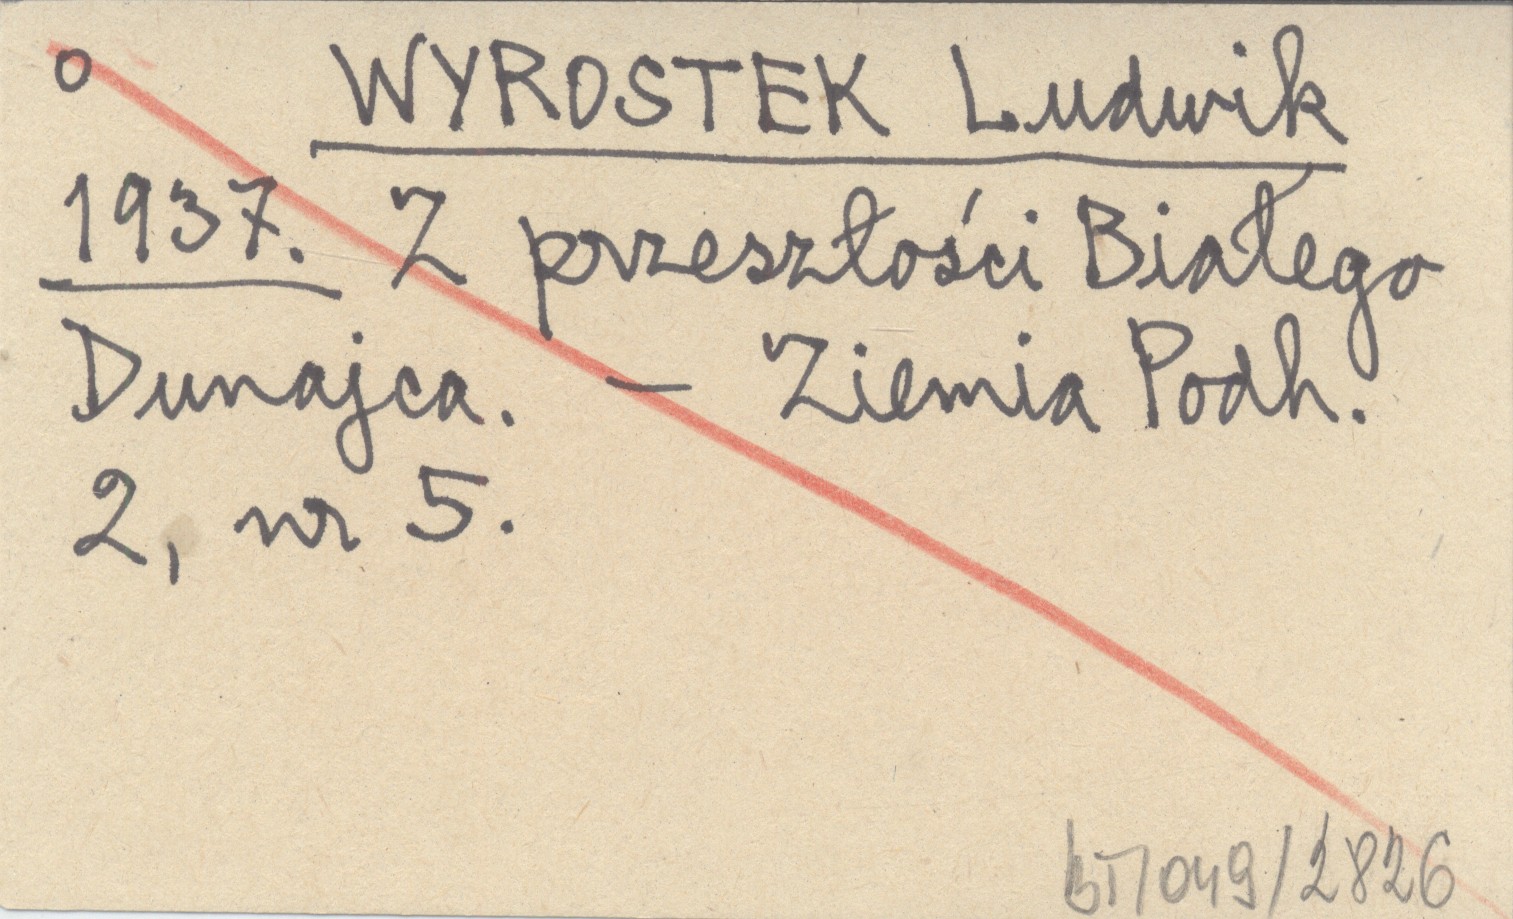 o WYROSTEK Ludwik
1937. Z przeszłości Białego
Dunajca. — Ziemia Podh.
2, nr 5.
BT/049/2826